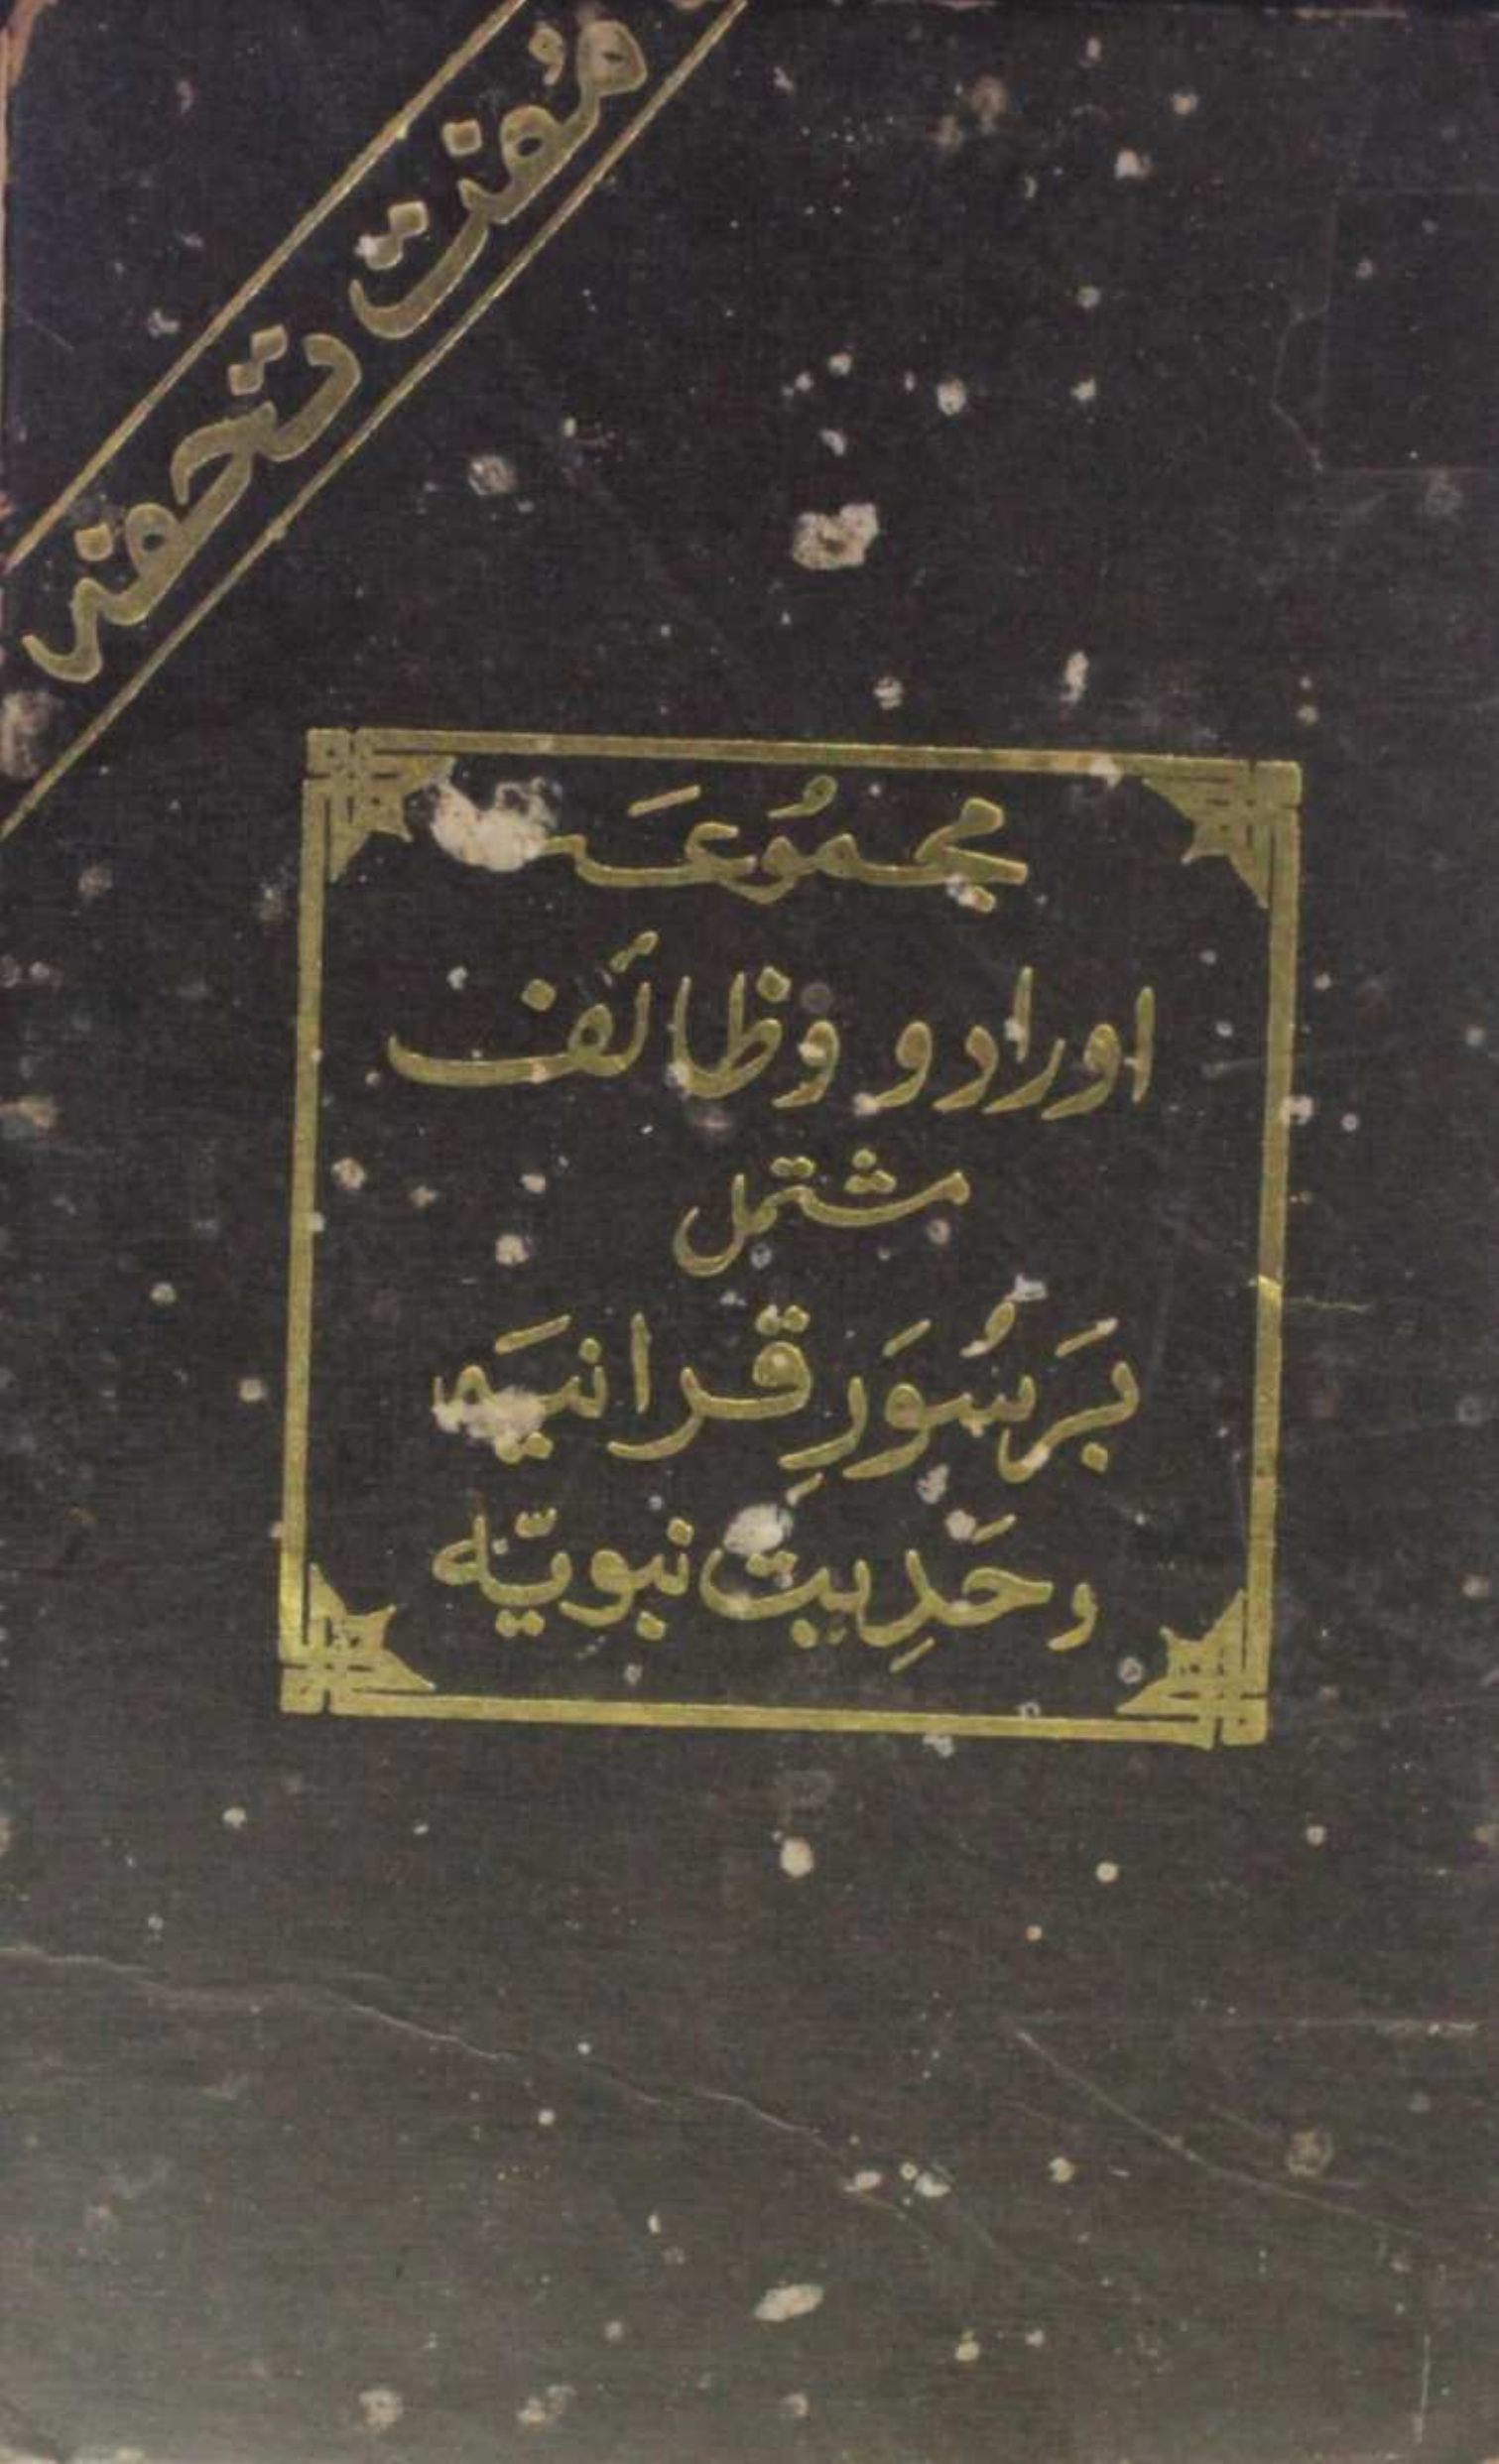 مُفت تحفہ
مجموُعَہ
اوراد و وظائف
مشتمل
بَر سُوَرِ قرانیَہ
و حَدِیث نبویّہ